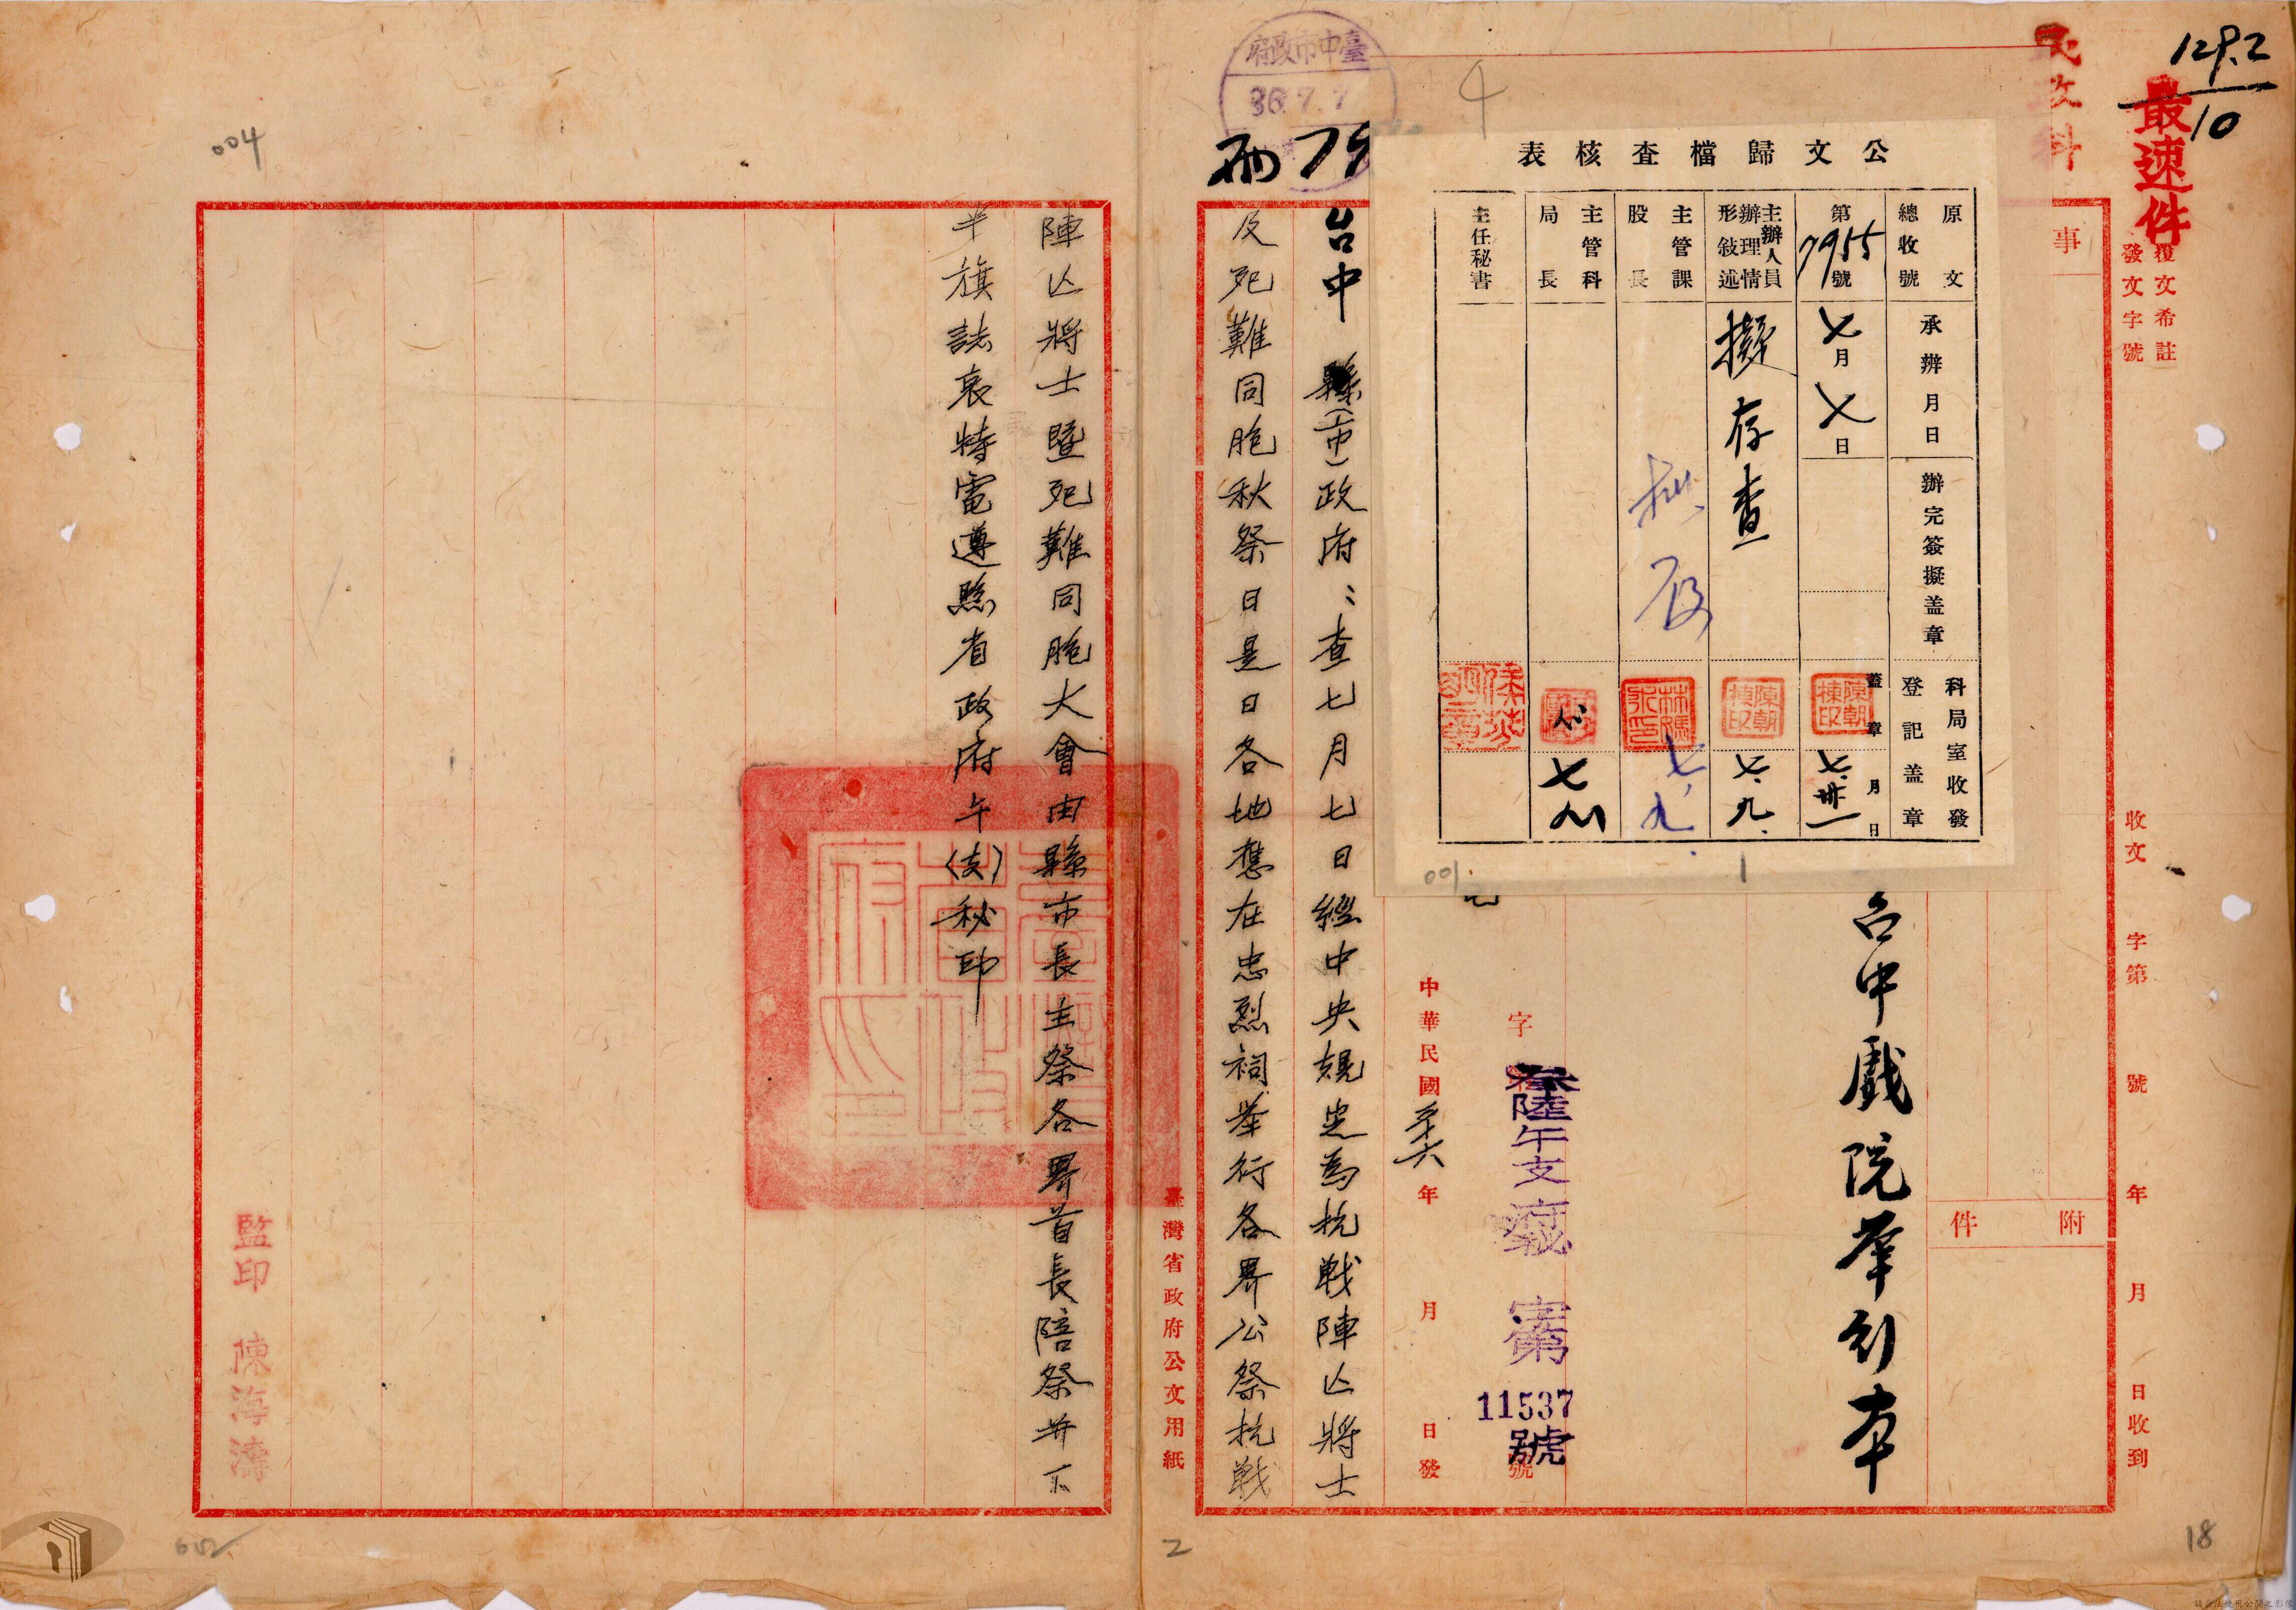 129.2
10
最速件
民政科
覆文希註
發文字號
收文 字第 號 年 月 日收到
事
附
件
臺中市政府
36.7.7
公文歸檔查核表
原文
總收號
承辦月日
辦完簽擬盖章
科局室收發
登記盖章
第7955號
七月七日
蓋章
陳朝棟印
月日
七.卅一
主辦人員
辦理情
形敍述
擬存查
陳朝棟印
七.九.
主管課
股長
七.九.
主管科
局長
主任秘書
001.
台中戲院举行本
字 號
叁陸午支
府秘
第
11537
號
中華民國 年 月 日發
台中縣(市)政府:查七月七日經中央規定為抗戰陣亡將士
及死難同胞秋祭日是日各地應在忠烈祠举行各界公祭抗戰
臺灣省政府公文用紙
陣亡將士暨死難同胞大會由縣市長主祭各界首長陪祭并下
半旗誌哀特電遵照省政府午(支)秘印
臺灣省政府印
監印 陳海濤
004
2
18